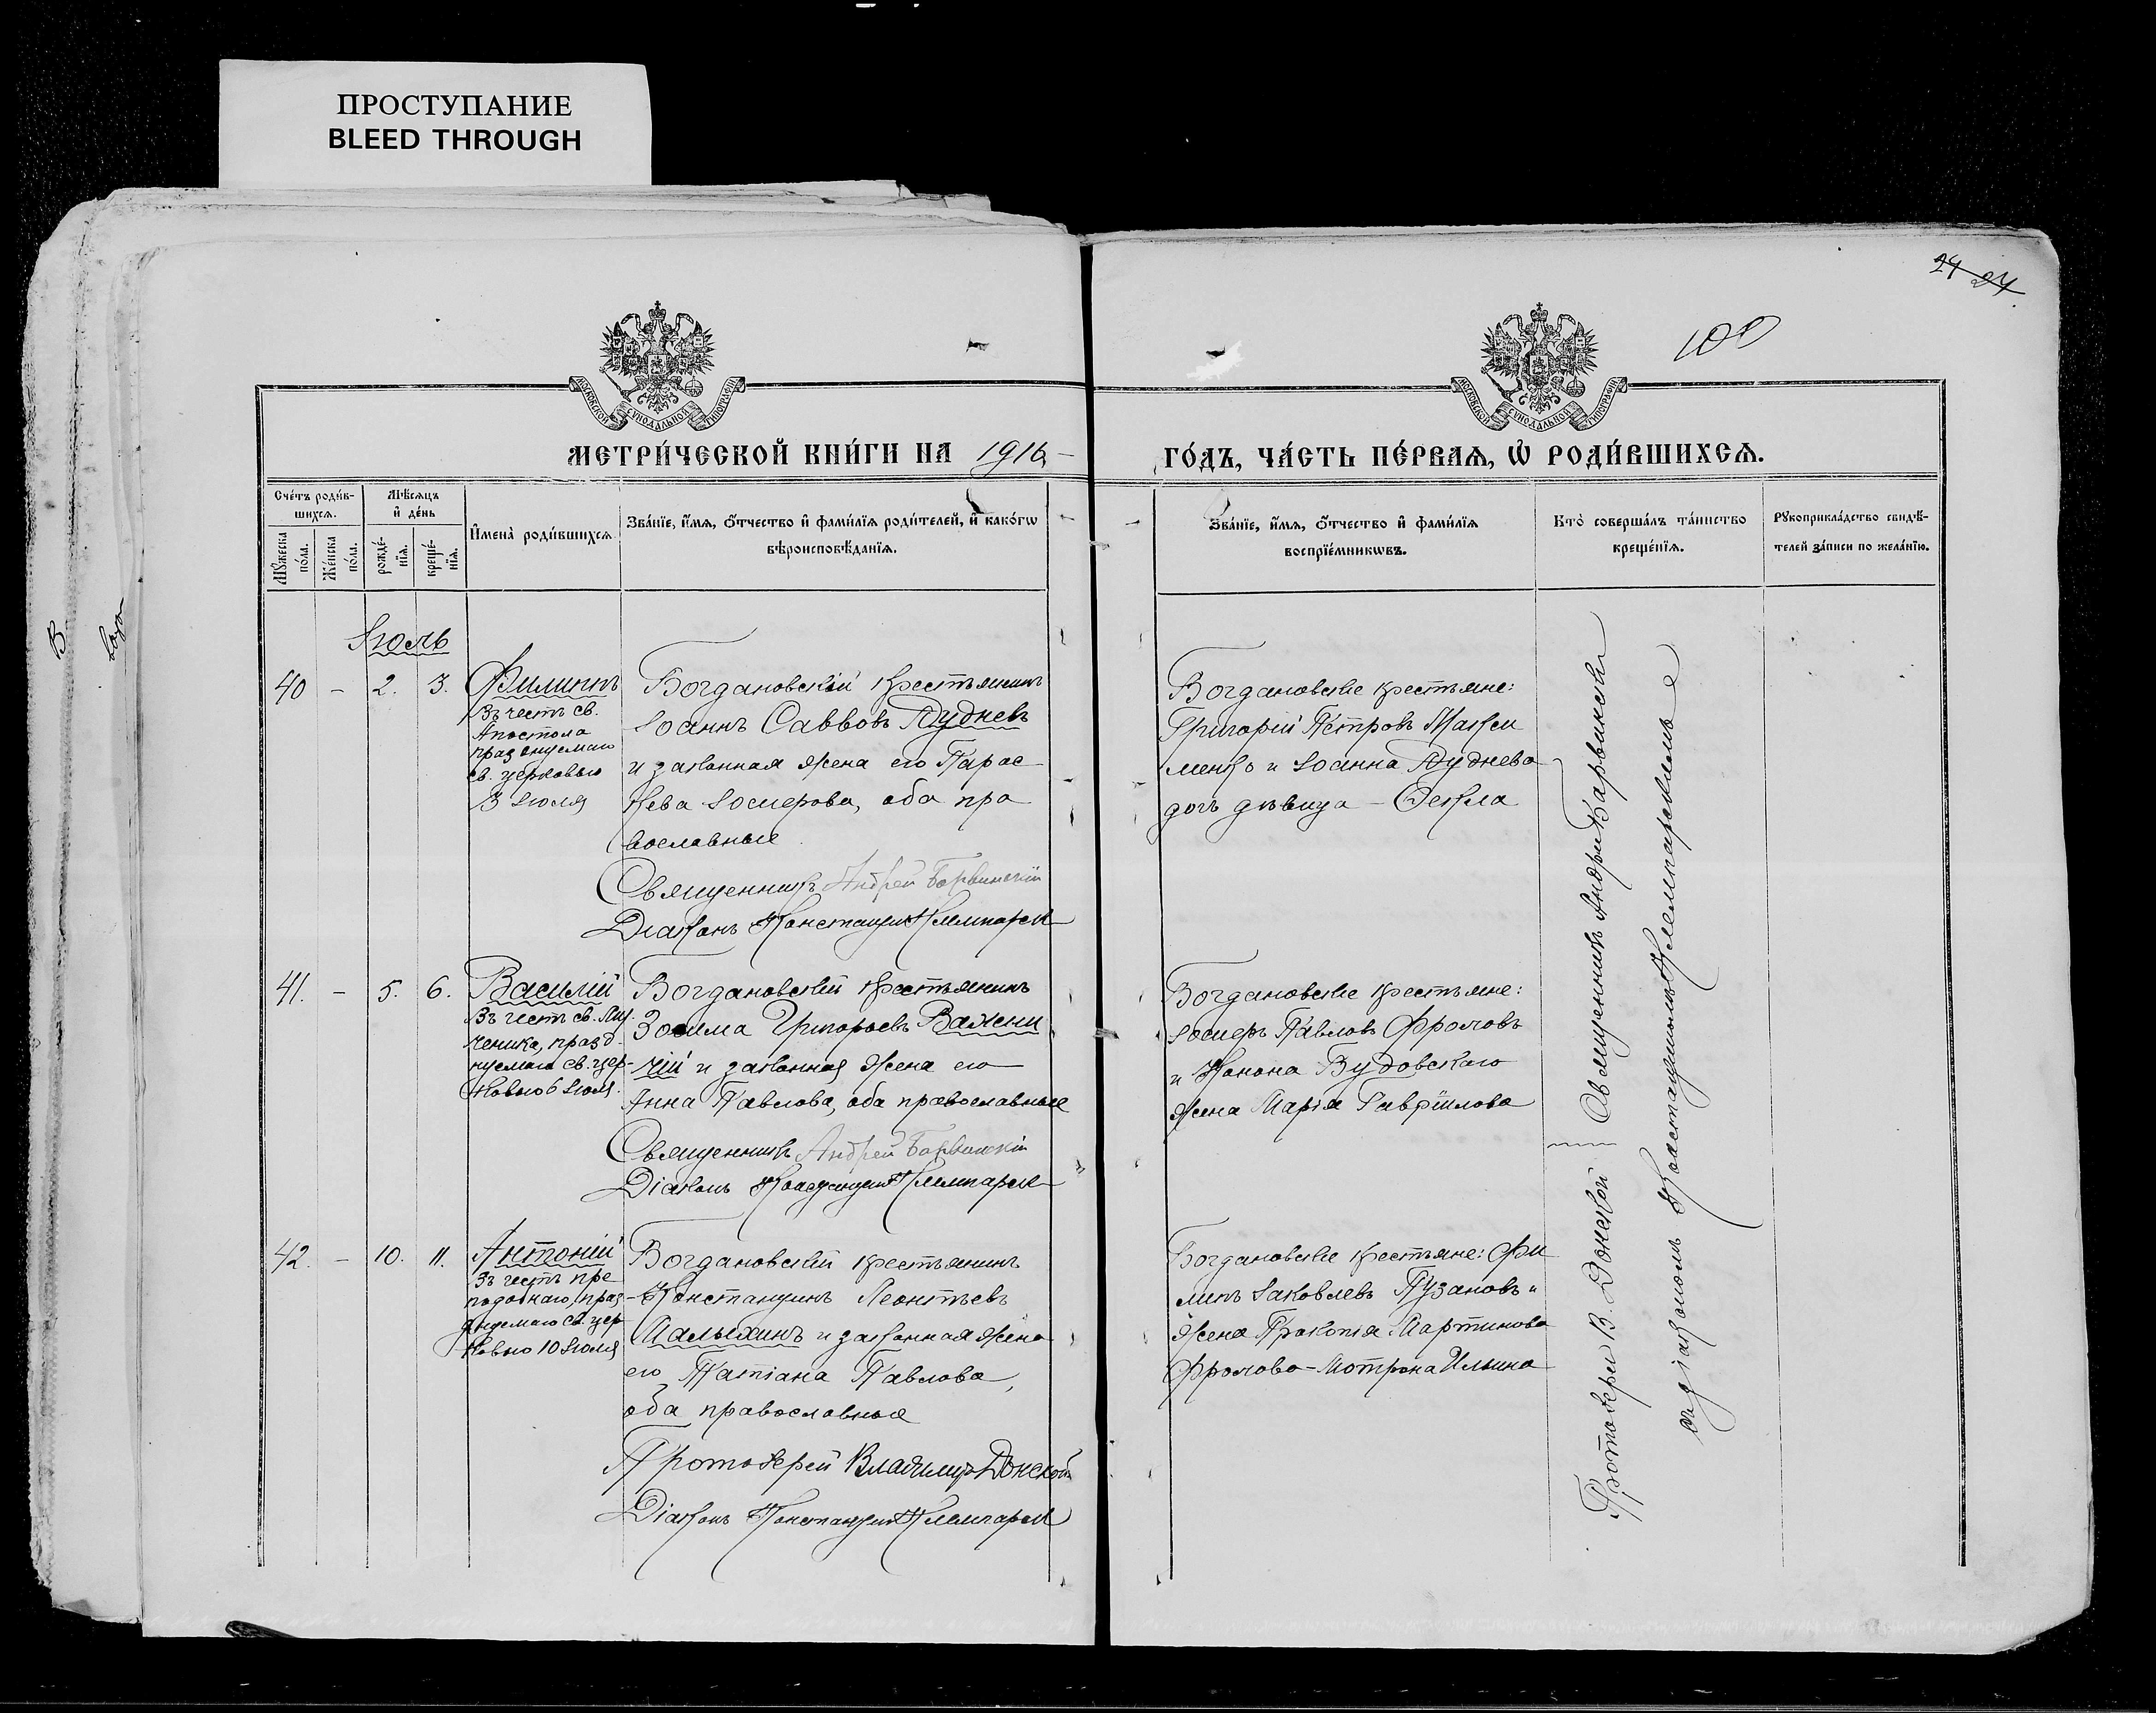 ПРОСТУПАНИЕ
BLEED THROUGH
24 24
100
МЕТРИ́ЧЕСКОЙ КНИ́ГИ НА 1916 ГО́ДЪ, ЧА́СТЬ ПЕ́РВАѦ, Ѡ҆ РОДИ́ВШИХСѦ.
Сче́тъ роди́в-
шихсѧ.
Мѣ́сѧцъ
и҆ де́нь
Мꙋ́жеска
по́ла.
Же́нска
по́ла.
рожде́-
нїѧ.
креще́-
нїѧ.
И҆мена̀ роди́вшихсѧ.
Зва́нїе, и҆́мѧ, ѻ҆́тчество и҆ фами́лїѧ роди́телей, и҆ како́гѡ
вѣроисповѣ́данїѧ.
Зва́нїе, и҆́мѧ, ѻ҆́тчество и҆ фами́лїѧ
воспрїе́мникѡвъ.
Кто̀ соверша́лъ та́инство
креще́нїѧ.
Рꙋкоприкла́дство свидѣ́-
телей за́писи по жела́нїю.
Іюль
40 - 2. 3.
Филиппъ
Въ честь св.
Апостола
празднуемаго
св. церковью
3 Іюля
Богдановскій крестьянинъ
Іоаннъ Саввовъ Дудневъ
и законная жена его Парас
кева Іосифова, оба пра
вославные
Священникъ Андрей Барвинскій
Діаконъ Константинъ
Богдановскіе крестьяне:
Григорій Петровъ Макси
менко и Іоанна Дуднева
дочь девица - Фекла
41. - 5. 6.
Василій
Въ честь св. Му
ченика, празд-
нуемаго св. цер-
ковью 6 Іюля.
Богдановскій крестьянинъ
Зосима Григорьевъ Важени
чій и законная жена его
Анна Павлова, оба православные
Священникъ Андрей Барвинскій
Діаконъ Константинъ
Богдановскіе крестьяне:
Іосифъ Павловъ Фроловъ
и Конона Будовскаго
жена Марія Гавріилова
42. - 10. 11.
Антоній
Въ честь пре
подобнаго, праз-
днуемаго св. цер
ковью 10 Іюля
Богдановскій крестьянинъ
Константинъ Леонтьевъ
Малыхинъ и законная жена
его Татіана Павлова,
оба православные
Протоіерей Владимиръ Донской
Діаконъ Константинъ
Богдановскіе крестьяне: Фи
липъ Іаковлевъ Пузановъ и
жена Прокопія Мартинова
Фролова - Мотрона Ильина
Протоіерей В. Донской
Священникъ Андрей Барвинскій
съ діакономъ Константиномъ